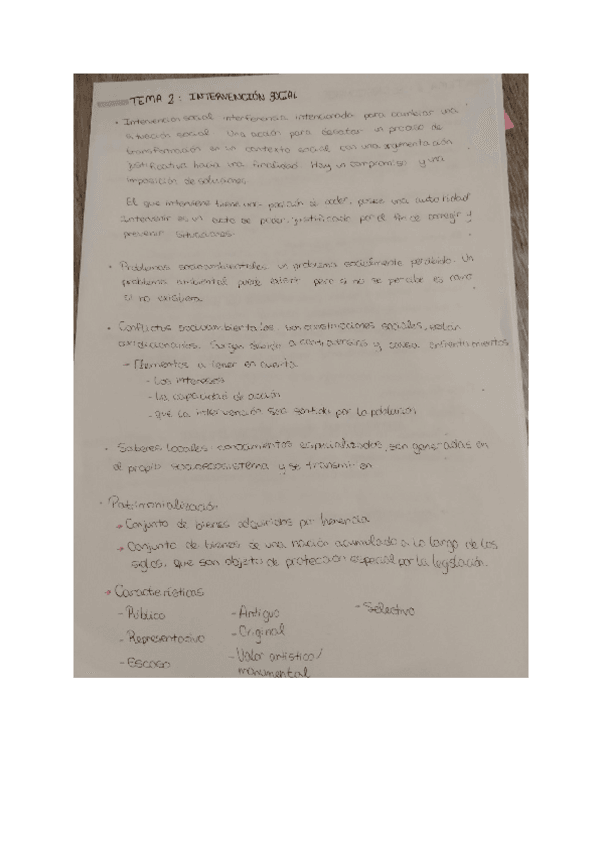 TEMA 2: INTERVENCIÓN SOCIAL
• Intervención social interferencia intencionada para cambiar una
situación social. Una acción para desatar un proceso de
transformación en un contexto social con una argumentación
justificativa hacia una finalidad. Hay un compromiso y una
imposición de soluciones.
El que interviene tiene una posición de poder, posee una autoridad
Intervenir es un acto de poder justificado por el fin de corregir y
prevenir situaciones.
• Problemas socioambientales: un problema socialmente percibido. Un
problema ambiental puede existir pero si no se percibe es como
si no existiera
• Conflictos socioambientales: son construcciones sociales, están
Surgen debido a controversias y causa enfrentamientos
- Elementos a tener en cuenta
- Los intereses
- La capacidad de acción
- Que la intervención sea sentida por la población
• Saberes locales: conocimientos especializados, son generadas en
el propio socioecosistema y se transmiten
• Patrimonialización
→ Conjunto de bienes adquiridos por herencia
→ Conjunto de bienes de una nación acumulado a lo largo de los
siglos, que son objeto de protección especial por la legislación.
→ Características
- Público - Antiguo - Selectivo
- Representativo - Original
- Escaso - Valor artístico/
monumental